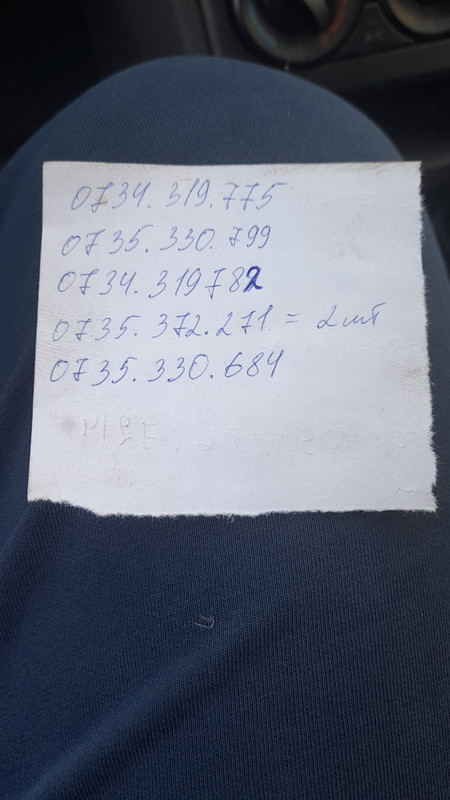 0734.319.775
0735.330.799
0734.319782
0735.372.271. = 2 шт
0735.330.684